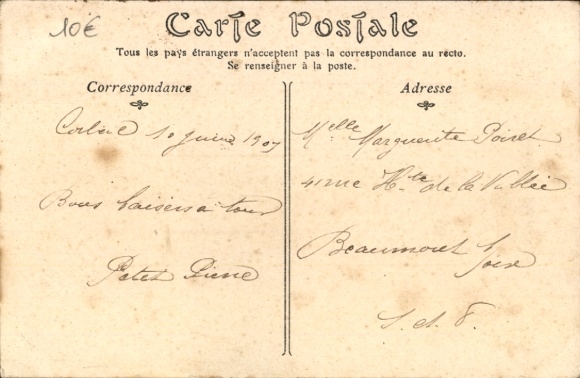 10€
Carte Postale
Tous les pays étrangers n'acceptent pas la correspondance au recto.
Se renseigner à la poste.
Correspondance
10 1907
Bons baisers à tous
Petit Pierre
Adresse
Melle Marguerite Poiret
rue Hte de la Vallée
Beaumont s/
Oise
S. et O.